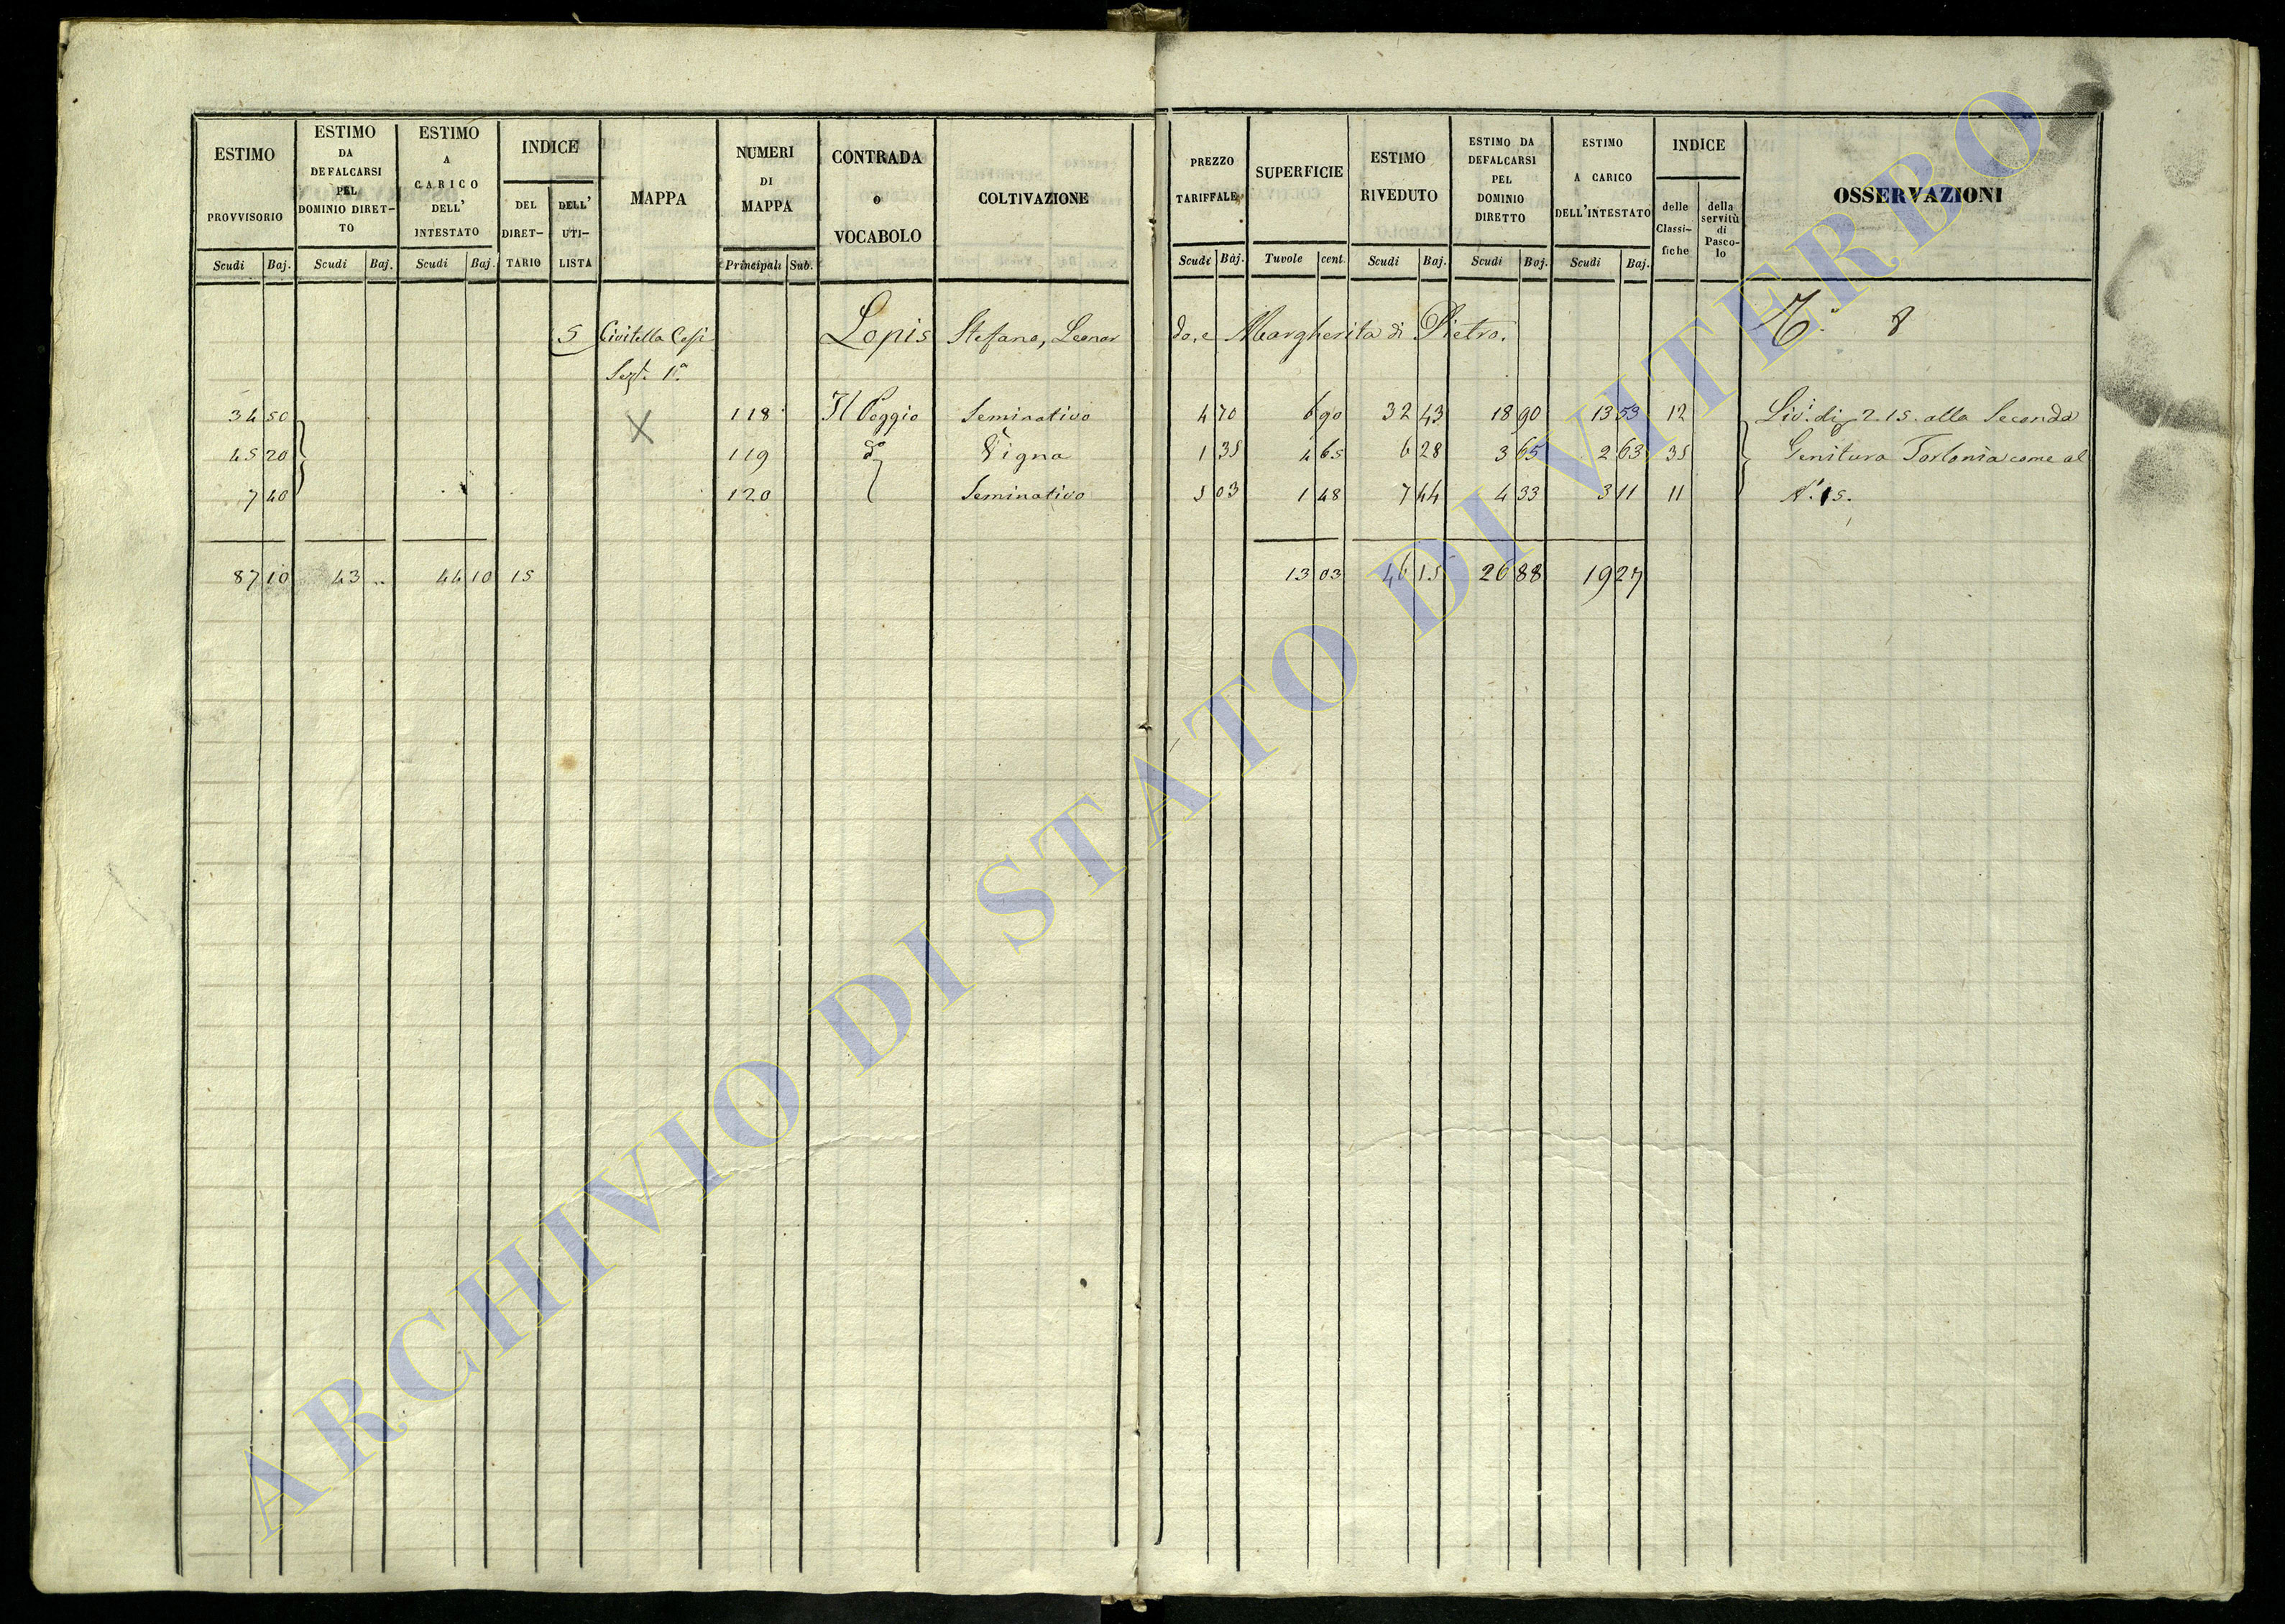 ESTIMO PROVVISORIO | ESTIMO DA DEFALCARSI PEL DOMINIO DIRETTO | ESTIMO A CARICO DELL' INTESTATO | INDICE | MAPPA | NUMERI DI MAPPA | CONTRADA o VOCABOLO | COLTIVAZIONE | PREZZO TARIFFALE | SUPERFICIE | ESTIMO RIVEDUTO | ESTIMO DA DEFALCARSI PEL DOMINIO DIRETTO | ESTIMO A CARICO DELL'INTESTATO | INDICE | OSSERVAZIONI
DEL DIRET-TARIO | DELL' UTI-LISTA | delle Classi-fiche | della servitù di Pasco-lo
Scudi | Baj. | Scudi | Baj. | Scudi | Baj. | Principali | Sub. | Scudi | Baj. | Tavole | cent. | Scudi | Baj. | Scudi | Baj. | Scudi | Baj.
5 Civitella Cesi Lopis Stefano, Leonardo, e Margherita di Pietro. 8
Sezt. 1.ª
34 50 118 Il Poggio Seminativo 4 70 6 90 32 43 18 90 13 53 12 Liv.º di 2.15. alla Seconda
45 20 119 do Vigna 1 35 4 65 6 28 3 65 2 63 35 Genitura Torlonia come al
7 40 120 Seminativo 5 03 1 48 7 44 4 33 3 11 11 N.º 15.
87 10 43 .. 44 10 15 13 03 46 15 26 88 19 27
ARCHIVIO DI STATO DI VITERBO